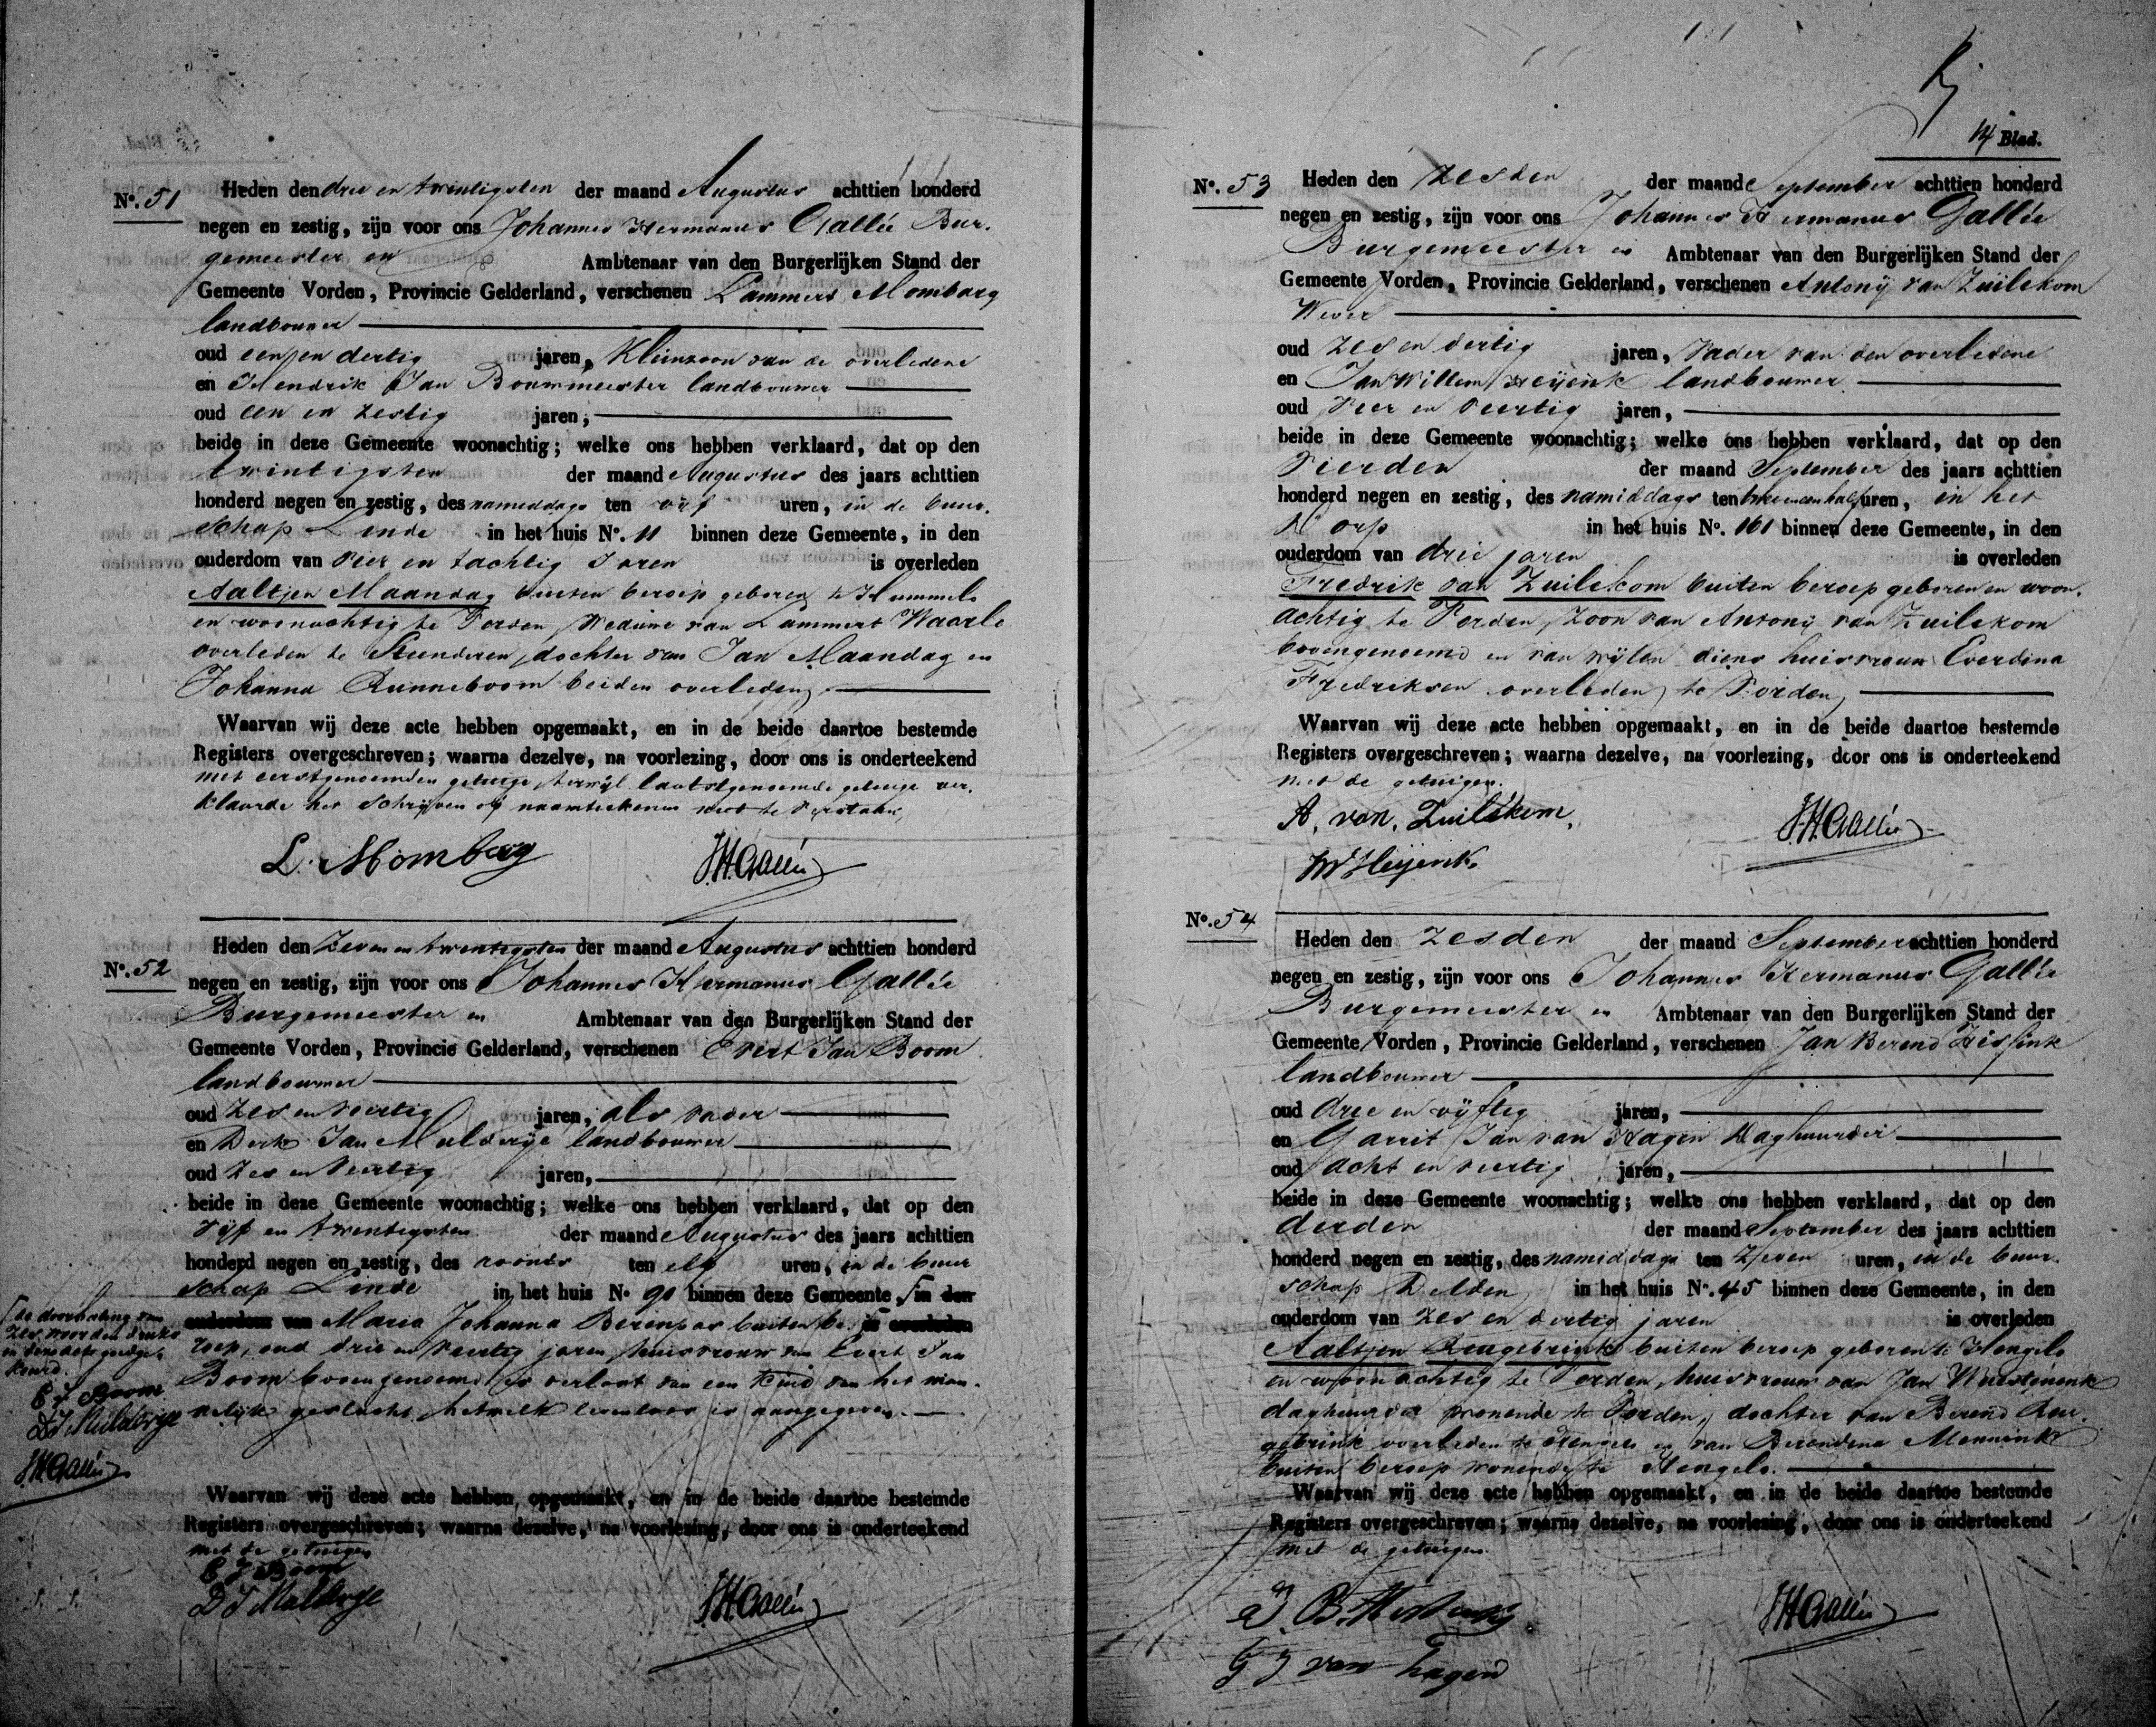 No. 51
Heden den drie en twintigsten der maand Augustus achttien honderd
negen en zestig, zijn voor ons Johannes Hermanus Gallée Bur-
gemeester en Ambtenaar van den Burgerlijken Stand der
Gemeente Vorden, Provincie Gelderland, verschenen Lammert Mombarg
landbouwer
oud een en dertig jaren, Kleinzoon van de overledene
en Hendrik Jan Bouwmeester landbouwer
oud een en zestig jaren,
beide in deze Gemeente woonachtig; welke ons hebben verklaard, dat op den
twintigsten der maand Augustus des jaars achttien
honderd negen en zestig, des namiddags ten vijf uren, in de buur-
schap Linde in het huis No. 11 binnen deze Gemeente, in den
ouderdom van vier en tachtig Jaren is overleden
Aaltjen Maandag buiten beroep geboren te Hummelo
en woonachtig te Vorden, Weduwe van Lammert Waarle
overleden te Steenderen, dochter van Jan Maandag en
Johanna Runneboom beiden overleden,
Waarvan wij deze acte hebben opgemaakt, en in de beide daartoe bestemde
Registers overgeschreven; waarna dezelve, na voorlezing, door ons is onderteekend
met eerstgenoemden getuige, terwijl laatstgenoemde getuige ver-
klaarde het schrijven of naamteekenen niet te verstaan,
L. Momberg JHGallée
No. 52
Heden den Zeven en twentigsten der maand Augustus achttien honderd
negen en zestig, zijn voor ons Johannes Hermanus Gallée
Burgemeester en Ambtenaar van den Burgerlijken Stand der
Gemeente Vorden, Provincie Gelderland, verschenen Evert Jan Boom
landbouwer
oud zes en veertig jaren, als vader
en Derk Jan Mulderije landbouwer
oud zes en veertig jaren,
beide in deze Gemeente woonachtig; welke ons hebben verklaard, dat op den
vijf en twentigsten der maand Augustus des jaars achttien
honderd negen en zestig, des voords ten elf uren, in de buur
schap Linde in het huis No 90 binnen deze Gemeente, in den
ouderdom van Maria Johanna Berenpas buiten be- is overleden
roep, oud drie en veertig jaren, huisvrouw van Evert Jan
Boom bovengenoemd is verlost van een Kind van het man-
nelijk geslacht, hetwelk levenloos is aangegeven.
de doorhaling van
zes woorden druks
in deze acte goedge-
keurd.
E J Boom
DJ Mulderije
JHGallée
Waarvan wij deze acte hebben opgemaakt, en in de beide daartoe bestemde
Registers overgeschreven; waarna dezelve, na voorlezing, door ons is onderteekend
met de getuigen
E J Boom
D J Mulderije JHGallée
14 Blad.
No. 53
Heden den zesden der maand September achttien honderd
negen en zestig, zijn voor ons Johannes Hermanus Gallée
Burgemeester en Ambtenaar van den Burgerlijken Stand der
Gemeente Vorden, Provincie Gelderland, verschenen Antonij van Zuilekom
Wever
oud zes en dertig jaren, Vader van den overledene
en Jan Willem Heijenk landbouwer
oud vier en veertig jaren,
beide in deze Gemeente woonachtig; welke ons hebben verklaard, dat op den
vierden der maand September des jaars achttien
honderd negen en zestig, des namiddags ten twee en een half uren, in het
Dorp in het huis No. 161 binnen deze Gemeente, in den
ouderdom van drie jaren is overleden
Fredrik van Zuilekom buiten beroep geboren en woon-
achtig te Vorden, zoon van Antonij van Zuilekom
bovengenoemd en van wijlen diens huisvrouw Everdina
Fredriksen overleden te Vorden,
Waarvan wij deze acte hebben opgemaakt, en in de beide daartoe bestemde
Registers overgeschreven; waarna dezelve, na voorlezing, door ons is onderteekend
met de getuigen.
A. van. Zuilekom. JHGallée
JW Heijenk.
No. 54
Heden den zesden der maand September achttien honderd
negen en zestig, zijn voor ons Johannes Hermanus Gallée
Burgemeester en Ambtenaar van den Burgerlijken Stand der
Gemeente Vorden, Provincie Gelderland, verschenen Jan Berend Hissink
landbouwer
oud drie en vijftig jaren,
en Garrit Jan van Hagen Daghuurder
oud acht en veertig jaren,
beide in deze Gemeente woonachtig; welke ons hebben verklaard, dat op den
derden der maand September des jaars achttien
honderd negen en zestig, des namiddags ten zeven uren, in de buur-
schap Delden in het huis No. 45 binnen deze Gemeente, in den
ouderdom van zes en dertig jaren is overleden
Aaltjen Reugebrink buiten beroep geboren te Hengelo
en woonachtig te Vorden, huisvrouw van Jan
daghuurder wonende te Vorden, dochter van Berend Reu-
gebrink overleden te Hengelo en van Berendina Mennink
buiten beroep wonende te Hengelo.
Waarvan wij deze acte hebben opgemaakt, en in de beide daartoe bestemde
Registers overgeschreven; waarna dezelve, na voorlezing, door ons is onderteekend
met de getuigen.
J. B. Hissink JHGallée
G J van hagen